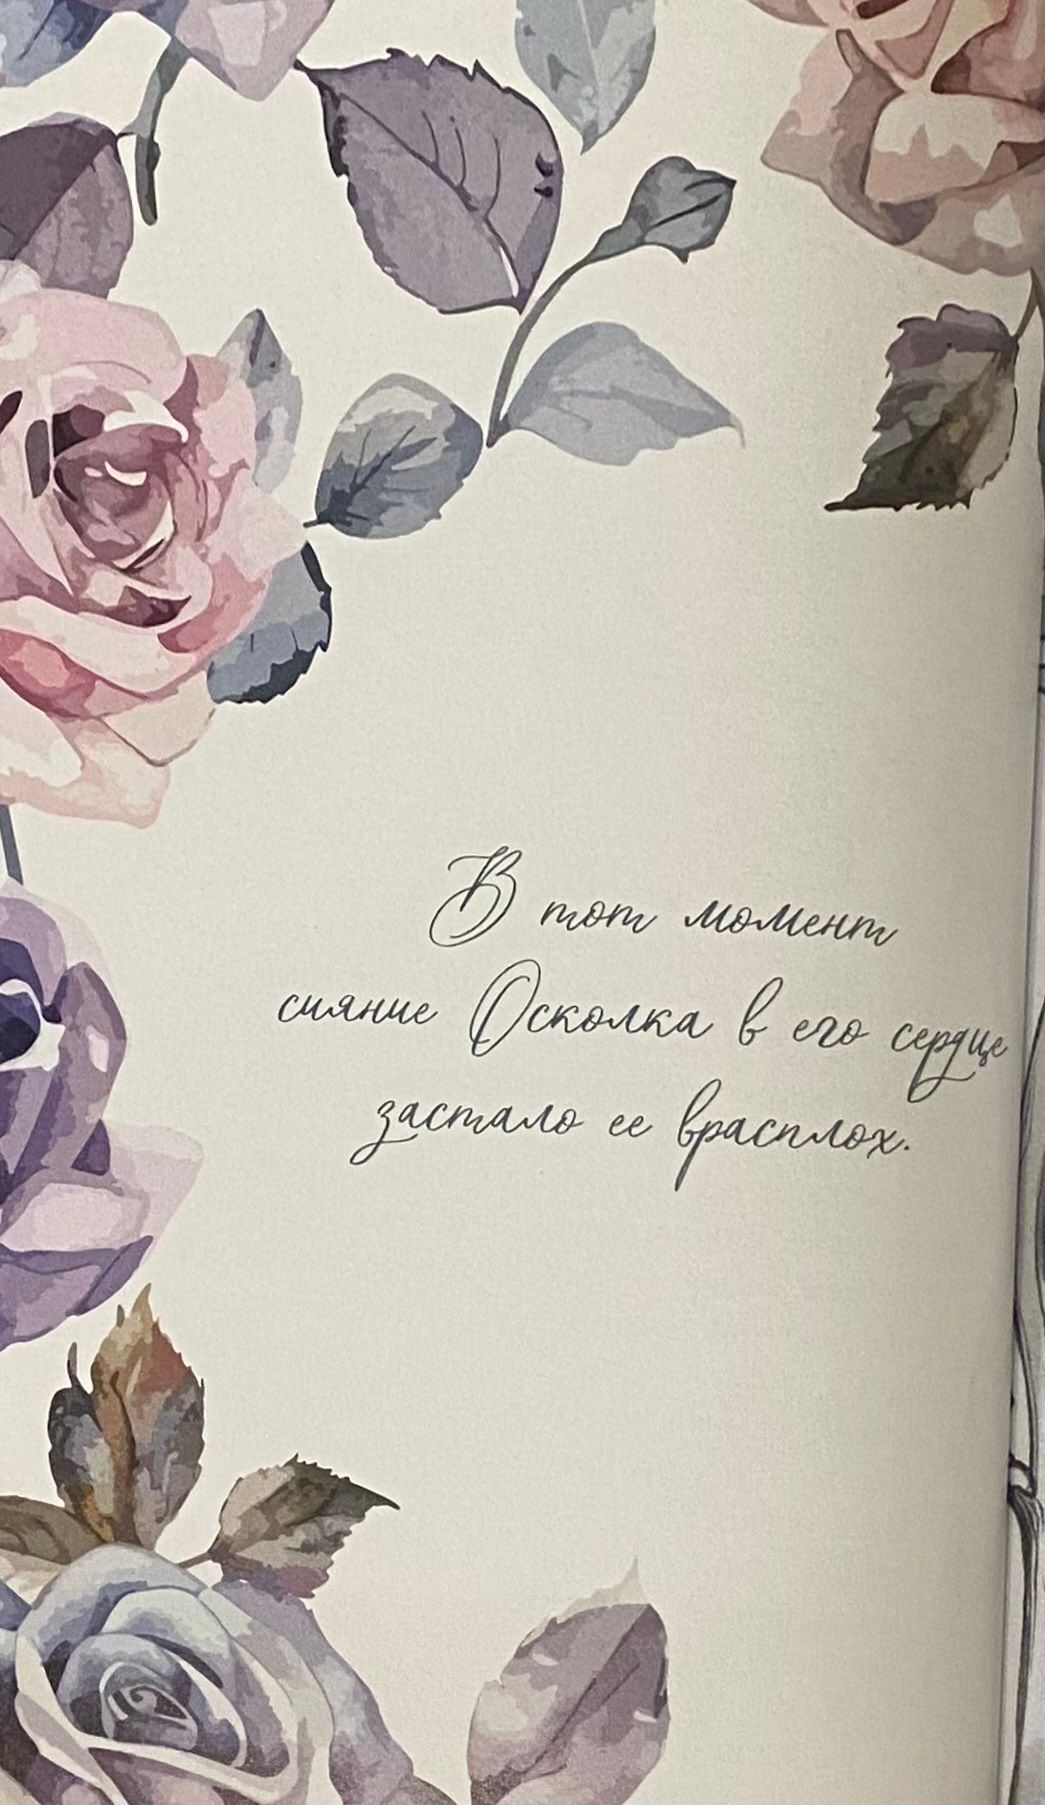 В тот момент
сияние Осколка в его сердце
застало ее врасплох.